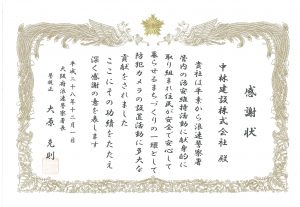 感謝状
中林建設株式会社 殿
貴社は平素から浪速警察署
管内の治安維持活動に献身的に
取り組まれ住民が安全で安心して
暮らせるまちづくりの一環として
防犯カメラの設置活動に多大な
貢献をされました
ここにその功績をたたえ
深く感謝の意を表します
平成二十八年十二月一日
大阪府浪速警察署長
警視正 大原克則